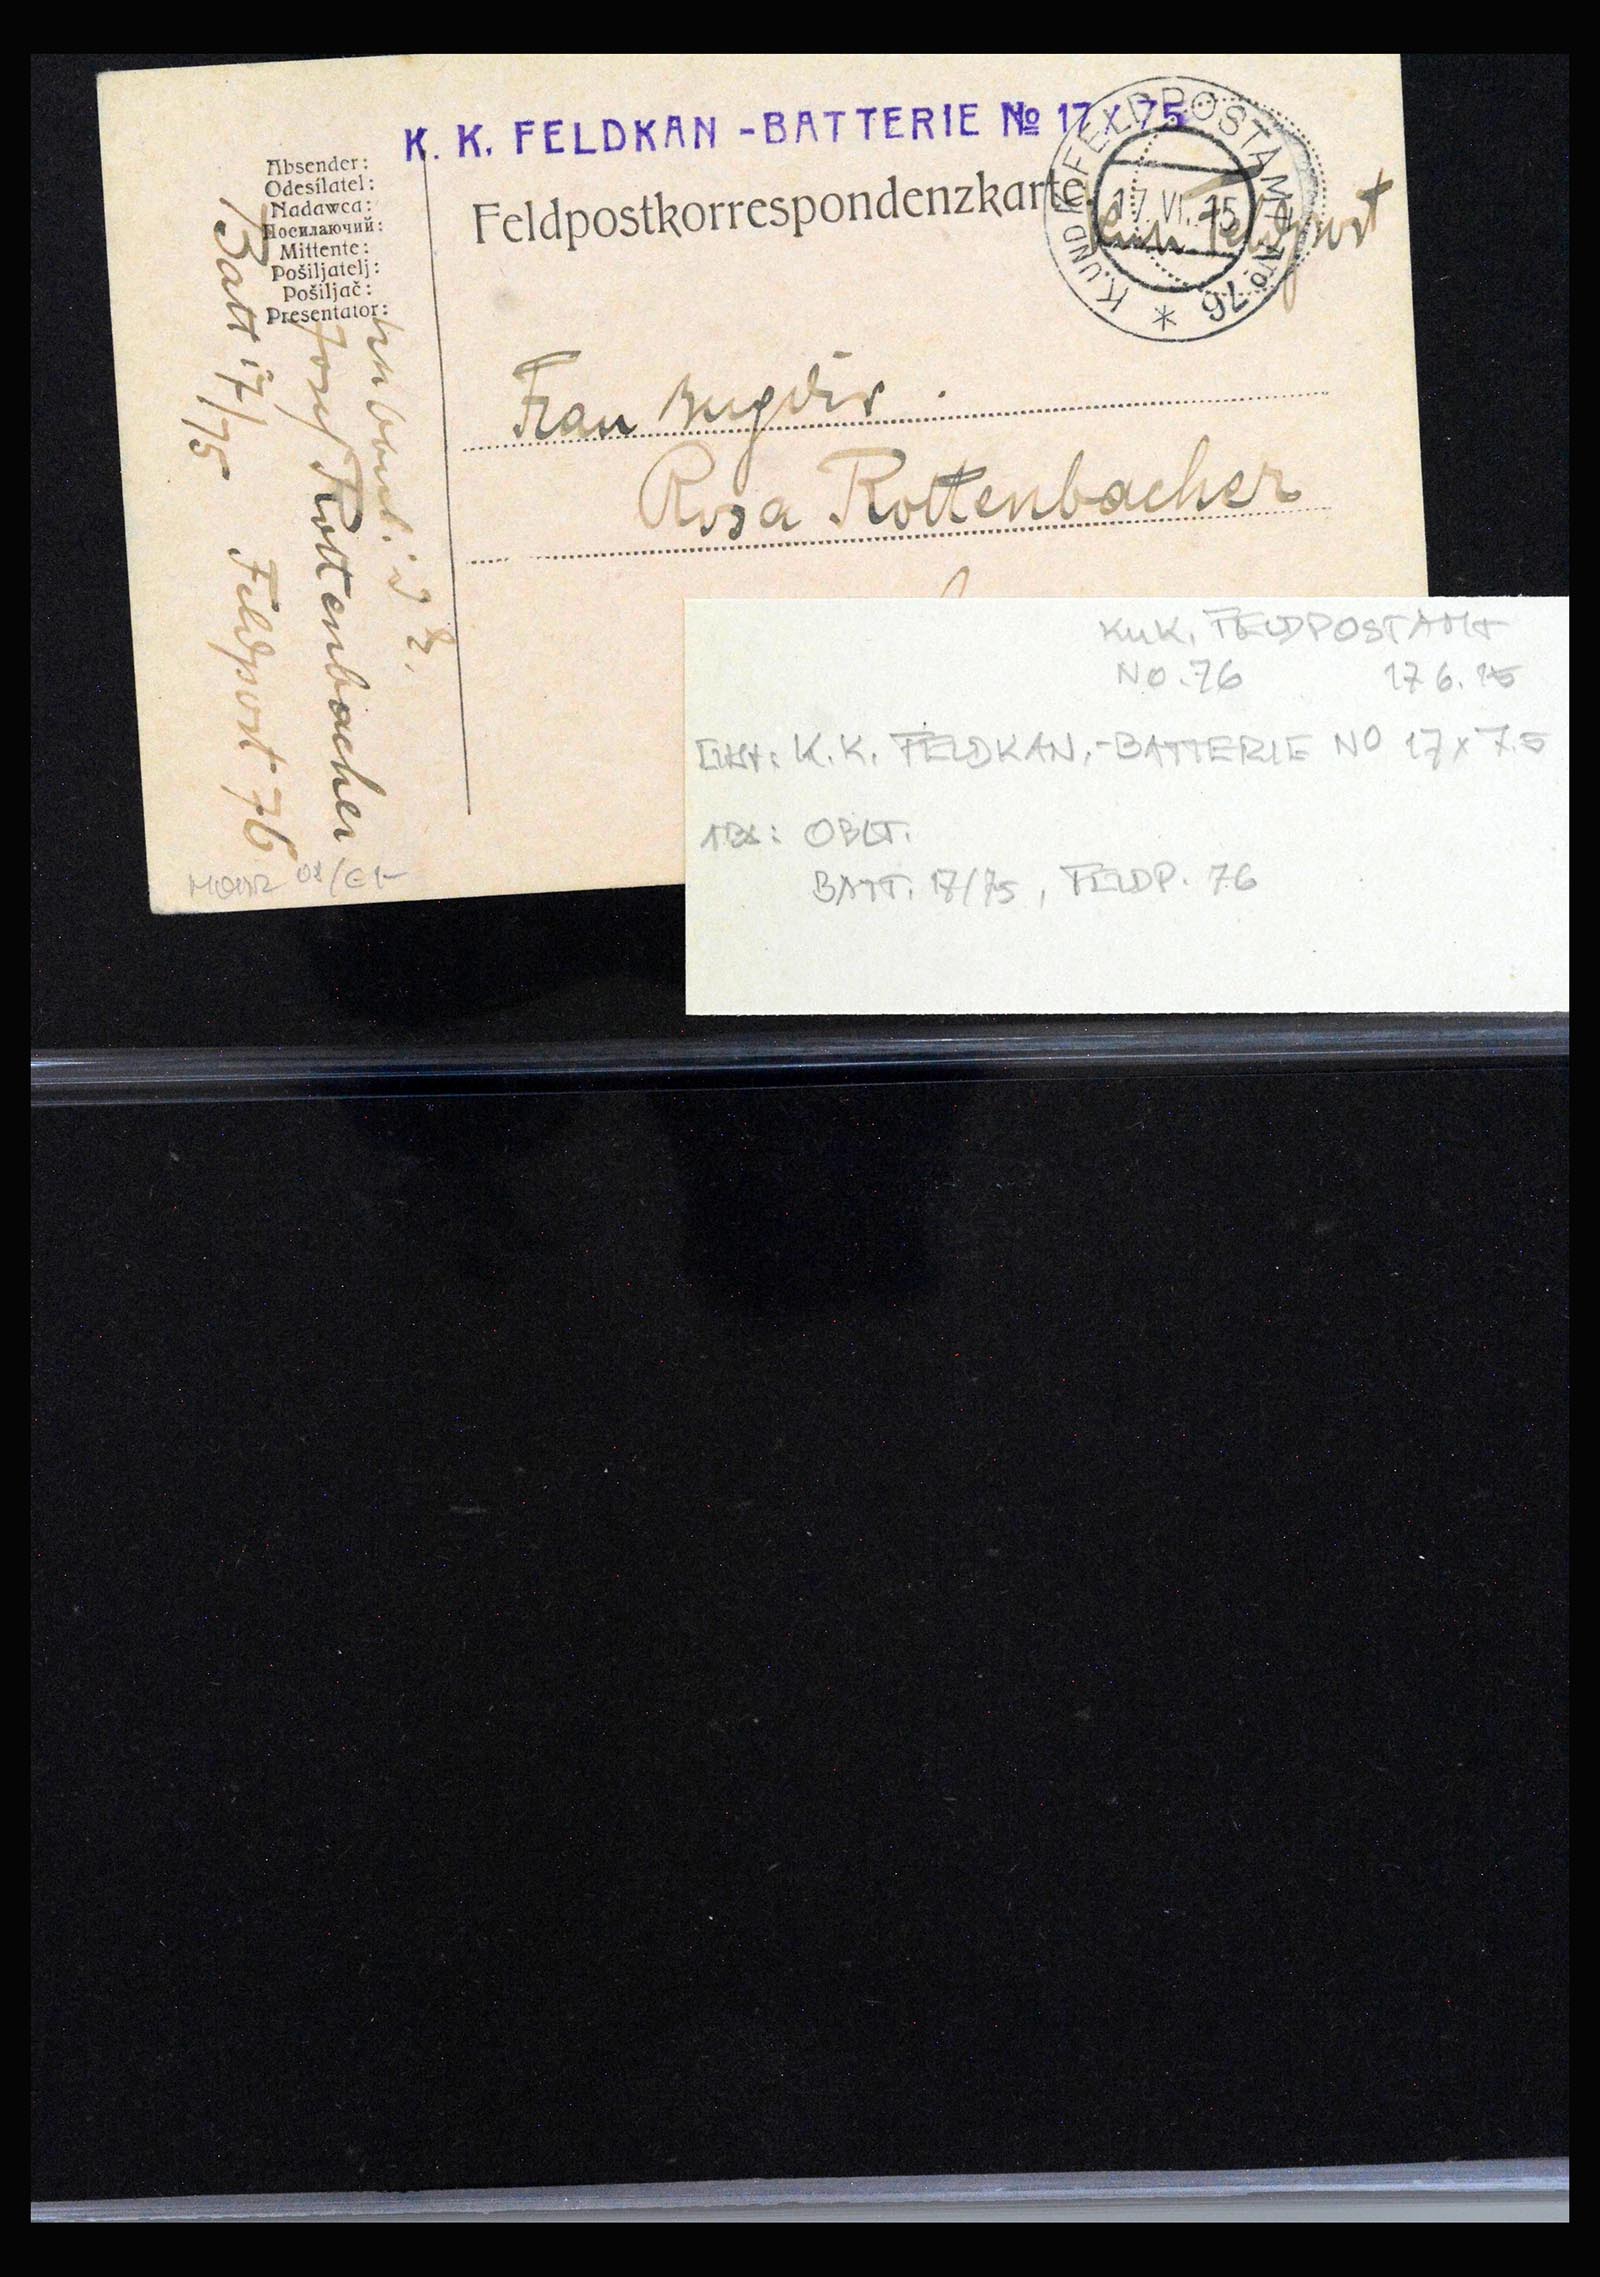 K. K. FELDKAN - BATTERIE № 17 x 75
K. UND K. FELDPOSTAMT No. 76 *
17. VI. 15
Feldpost
Feldpostkorrespondenzkarte
Absender:
Odesílatel:
Nadawca:
Посилаючий:
Mittente:
Pošiljatelj:
Pošiljač:
Presentator:
Josef Rottenbacher
Batt 17/75 Feldpost 76
Frau
Rosa Rottenbacher
KuK. FELDPOSTAMT
NO. 76 17 6. 15
K. K. FELDKAN.-BATTERIE NO 17 x 7.5
ABS: OBLT.
BATT. 17/75, FELDP. 76